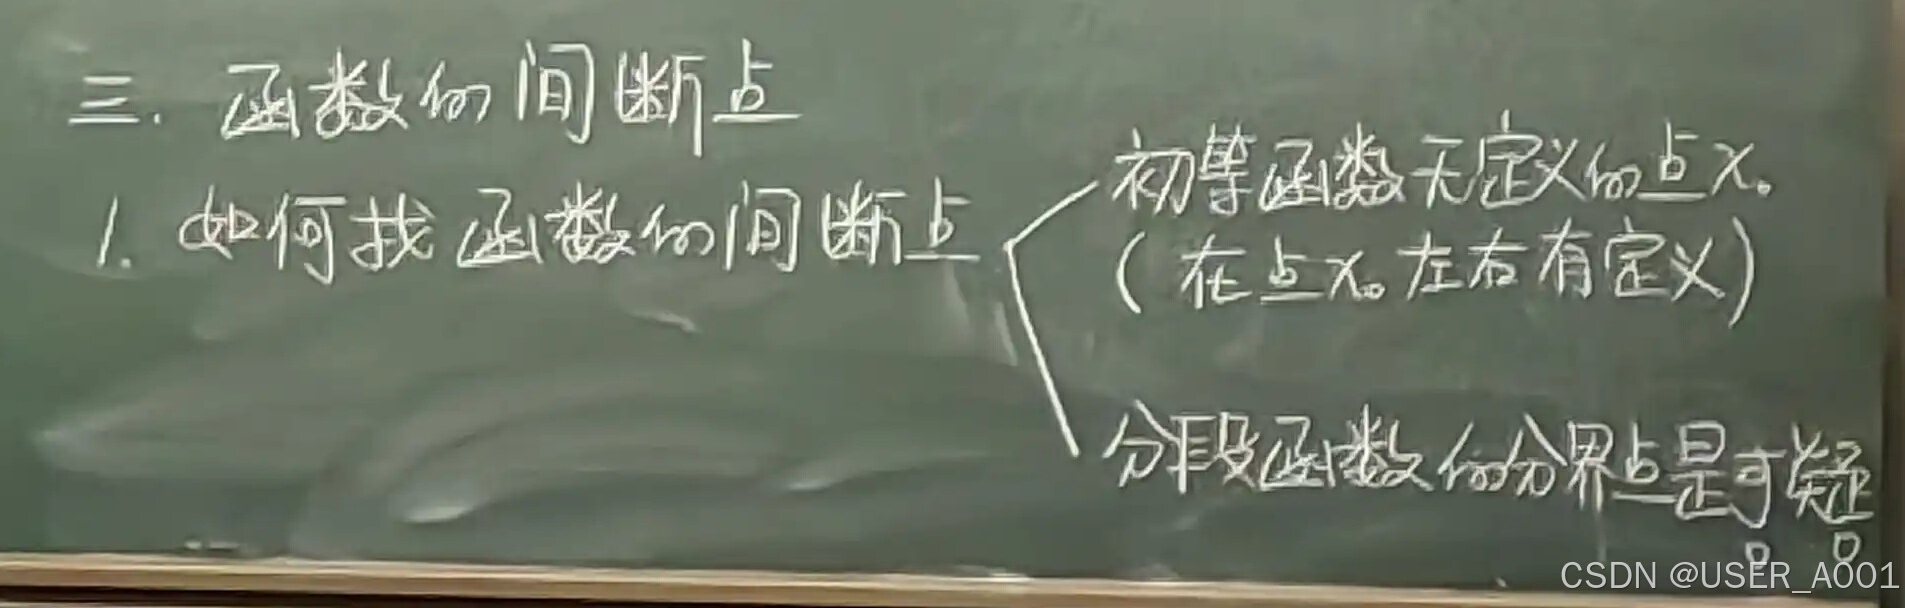 三. 函数的间断点
1. 如何找函数的间断点
初等函数无定义的点x₀
(在点x₀左右有定义)
分段函数的分界点是可疑
CSDN @USER_A001